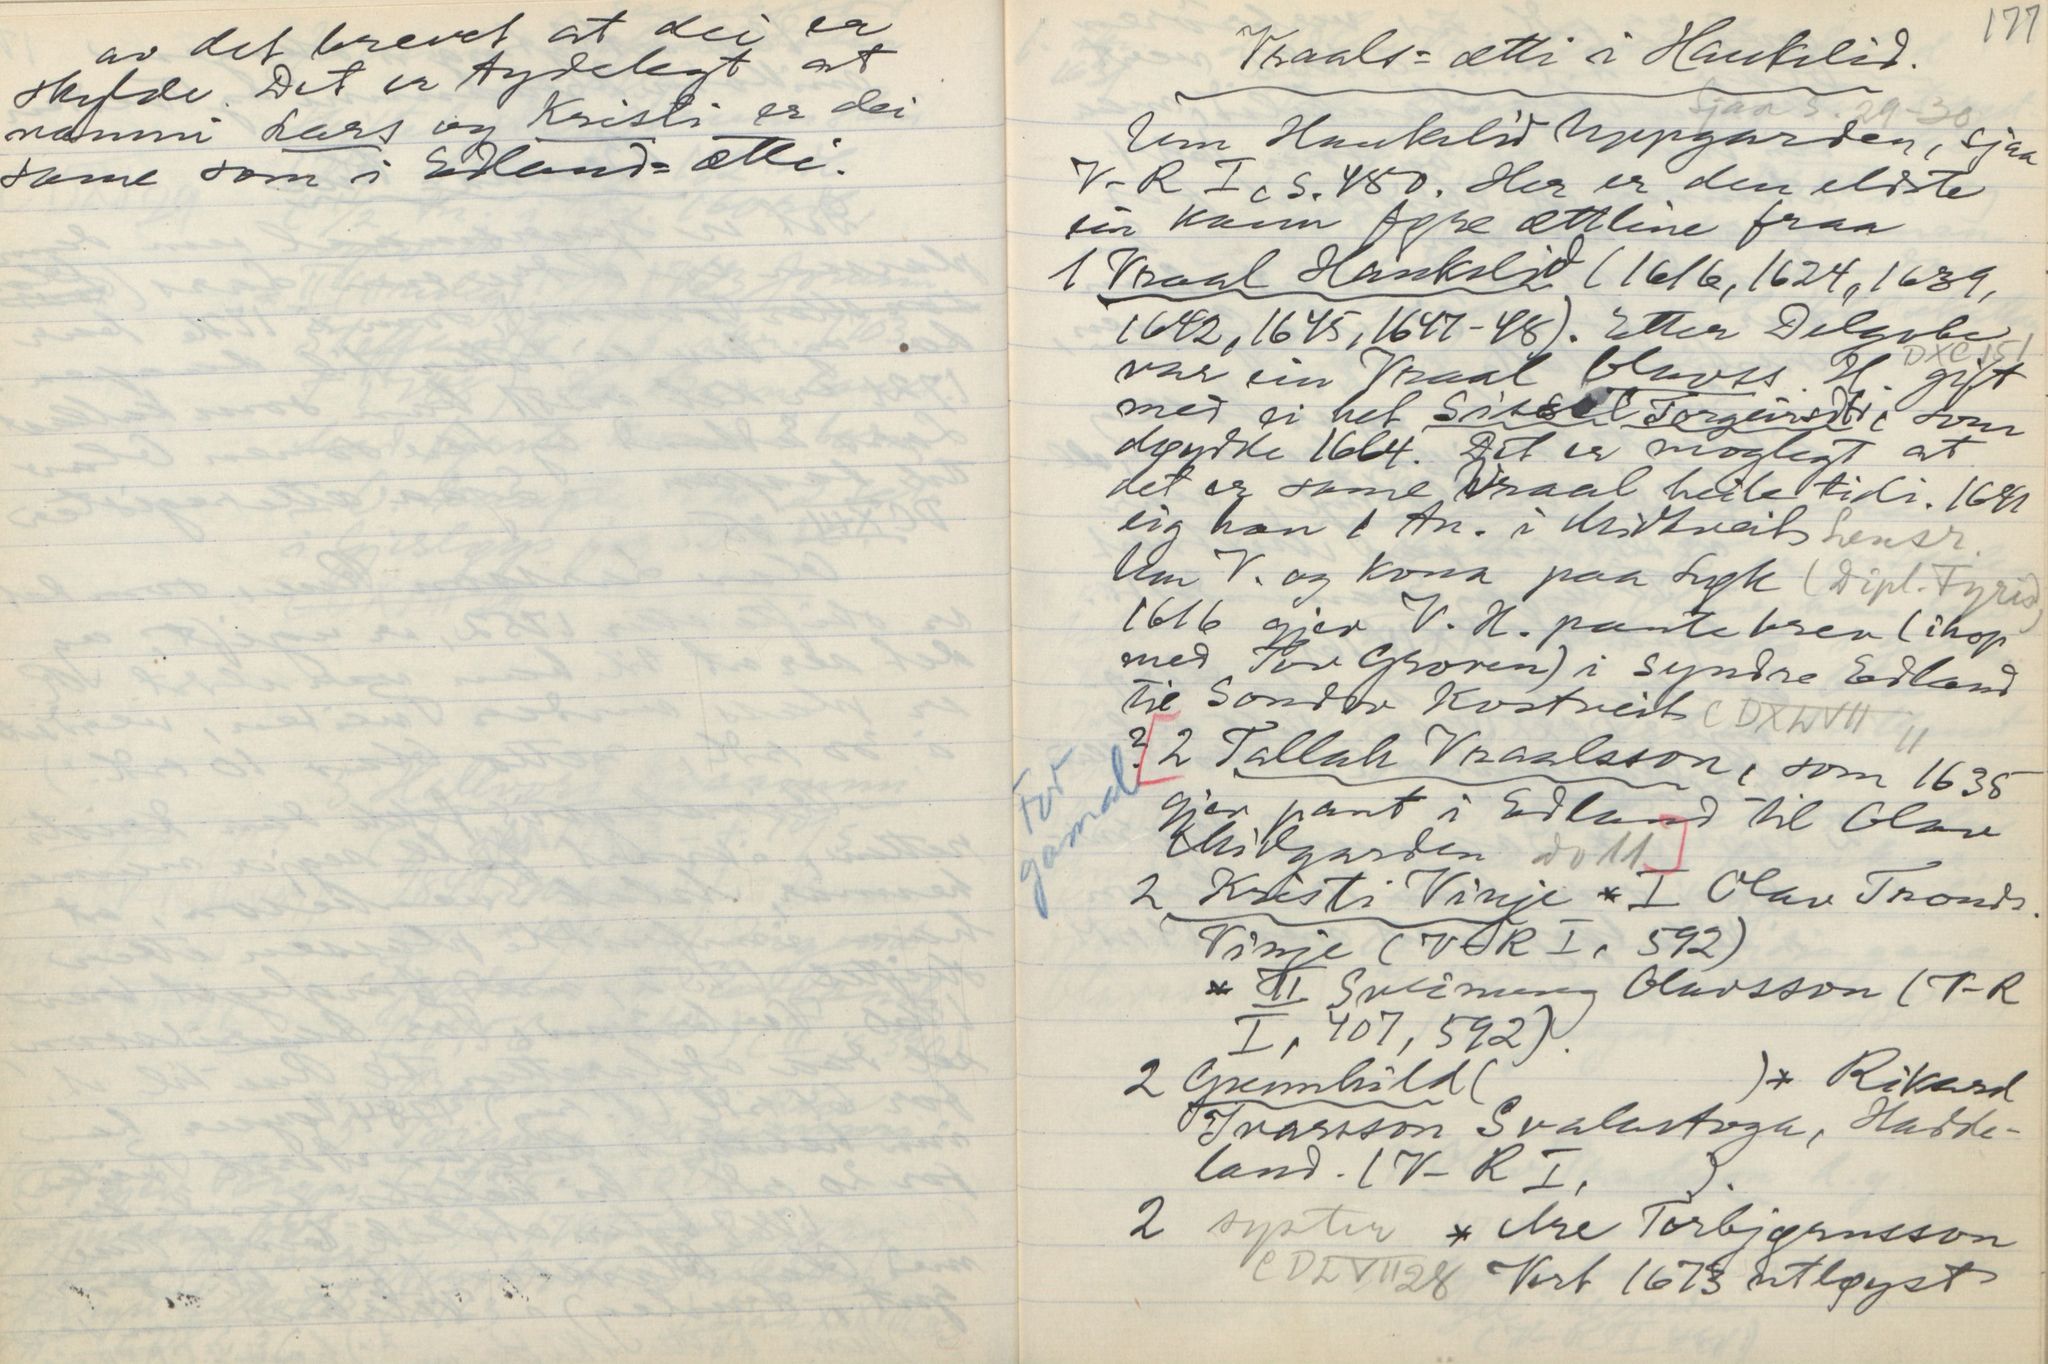 av det brevet at dei er
skylde. Det er tydelegt at
namni Lars og Kristi er dei
same som i Edland-ætti.
177
Vraals-ætti i Haukelid.
Sjaa S. 29-30
Um Haukelid Uppgarden, sjaa
V-R I, s. 450. Her er den eldste
ein kann føre ættline fraa
1 Vraal Haukelid (1616, 1624, 1639,
1642, 1645, 1647-48). Etter Delgobe
DXC 151
var ein Vraal Olavss. H. gift
med ei het Sissel Torgeirsdtr, som
døydde 1664. Det er moglegt at
det er same Vraal heile tidi. 1641
eig han 1 An. i Midtveit Lensr.
Um V. og kona paa Lygk (Dipl. Fyrid)
1616 gjev V. H. pantebrev (ihop
med Tov Groven) i Syndre Edland
til Sondov Kostveit CDXLVII 11
? 2 Tallak Vraalsson, som 1635
gjev pant i Edland til Olav
Midgarden do 11
For gamal
2 Kristi Vinje * I Olav Tronds.
Vinje (V-R I, 592)
* II Sveinung Olavsson (V-R
I, 407, 592).
2 Gunnhild ( ) * Rikard
Ivarsson Svalastoga, Hadde-
land. (V-R I, ).
2 syster * Are Torbjørnsson
CDLVII 28 Vert 1673 utløyst